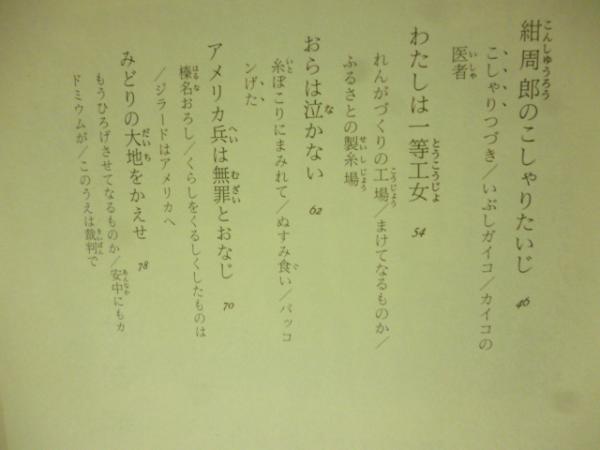 紺周郎のこしゃりたいじ 46
こしゃりつづき/いぶしガイコ/カイコの
医者
わたしは一等工女 54
れんがづくりの工場/まけてなるものか/
ふるさとの製糸場
おらは泣かない 62
糸ぼこりにまみれて/ぬすみ食い/バッコ
ンげた
アメリカ兵は無罪とおなじ 70
榛名おろし/くらしをくるしくしたものは
/ジラードはアメリカへ
みどりの大地をかえせ 78
もうひろげさせてなるものか/安中にもカ
ドミウムが/このうえは裁判で